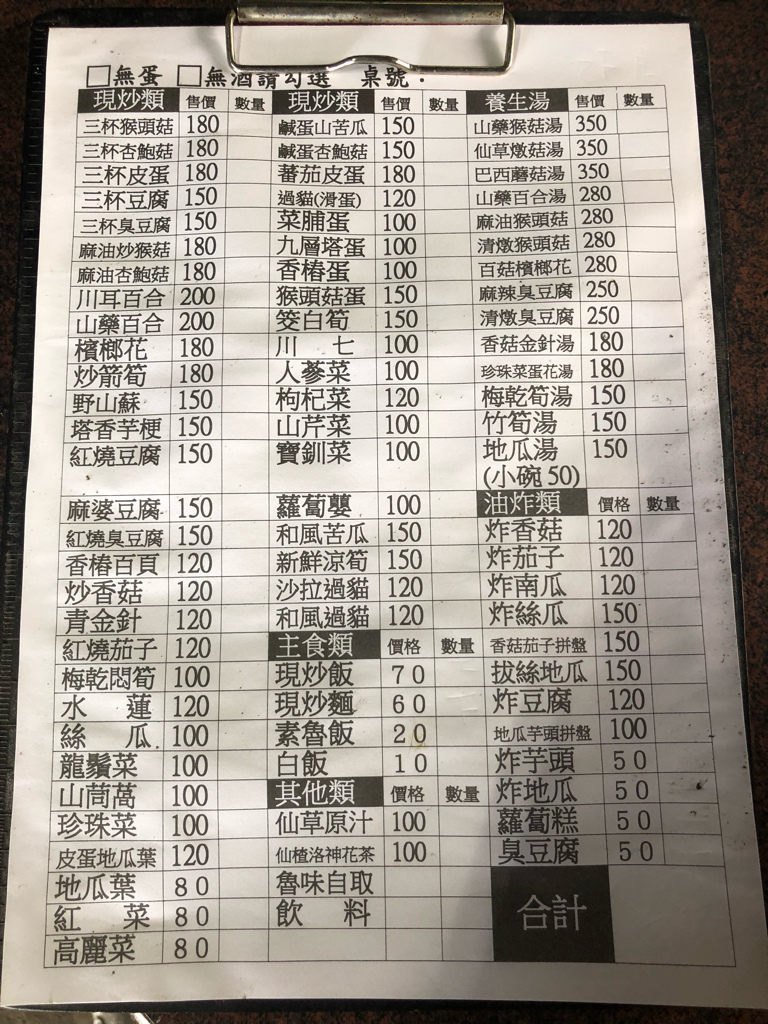 □無蛋 □無酒請勾選 桌號：
現炒類 售價 數量 現炒類 售價 數量 養生湯 售價 數量
三杯猴頭菇 180 鹹蛋山苦瓜 150 山藥猴菇湯 350
三杯杏鮑菇 180 鹹蛋杏鮑菇 150 仙草燉菇湯 350
三杯皮蛋 180 蕃茄皮蛋 180 巴西蘑菇湯 350
三杯豆腐 150 過貓(滑蛋) 120 山藥百合湯 280
三杯臭豆腐 150 菜脯蛋 100 麻油猴頭菇 280
麻油炒猴菇 180 九層塔蛋 100 清燉猴頭菇 280
麻油杏鮑菇 180 香椿蛋 100 百菇檳榔花 280
川耳百合 200 猴頭菇蛋 150 麻辣臭豆腐 250
山藥百合 200 筊白筍 150 清燉臭豆腐 250
檳榔花 180 川七 100 香菇金針湯 180
炒箭筍 180 人蔘菜 100 珍珠菜蛋花湯 180
野山蘇 150 枸杞菜 120 梅乾筍湯 150
塔香芋梗 150 山芹菜 100 竹筍湯 150
紅燒豆腐 150 寶釧菜 100 地瓜湯 150
(小碗50)
油炸類 價格 數量
麻婆豆腐 150 蘿蔔嬰 100 炸香菇 120
紅燒臭豆腐 150 和風苦瓜 150 炸茄子 120
香椿百頁 120 新鮮涼筍 150 炸南瓜 120
炒香菇 120 沙拉過貓 120 炸絲瓜 150
青金針 120 和風過貓 120 香菇茄子拼盤 150
紅燒茄子 120 主食類 價格 數量 拔絲地瓜 150
梅乾悶筍 100 現炒飯 70 炸豆腐 120
水蓮 120 現炒麵 60 地瓜芋頭拼盤 100
絲瓜 100 素魯飯 20 炸芋頭 50
龍鬚菜 100 白飯 10 炸地瓜 50
山茼萵 100 其他類 價格 數量 蘿蔔糕 50
珍珠菜 100 仙草原汁 100 臭豆腐 50
皮蛋地瓜葉 120 仙楂洛神花茶 100 合計
地瓜葉 80 魯味自取
紅菜 80 飲料
高麗菜 80